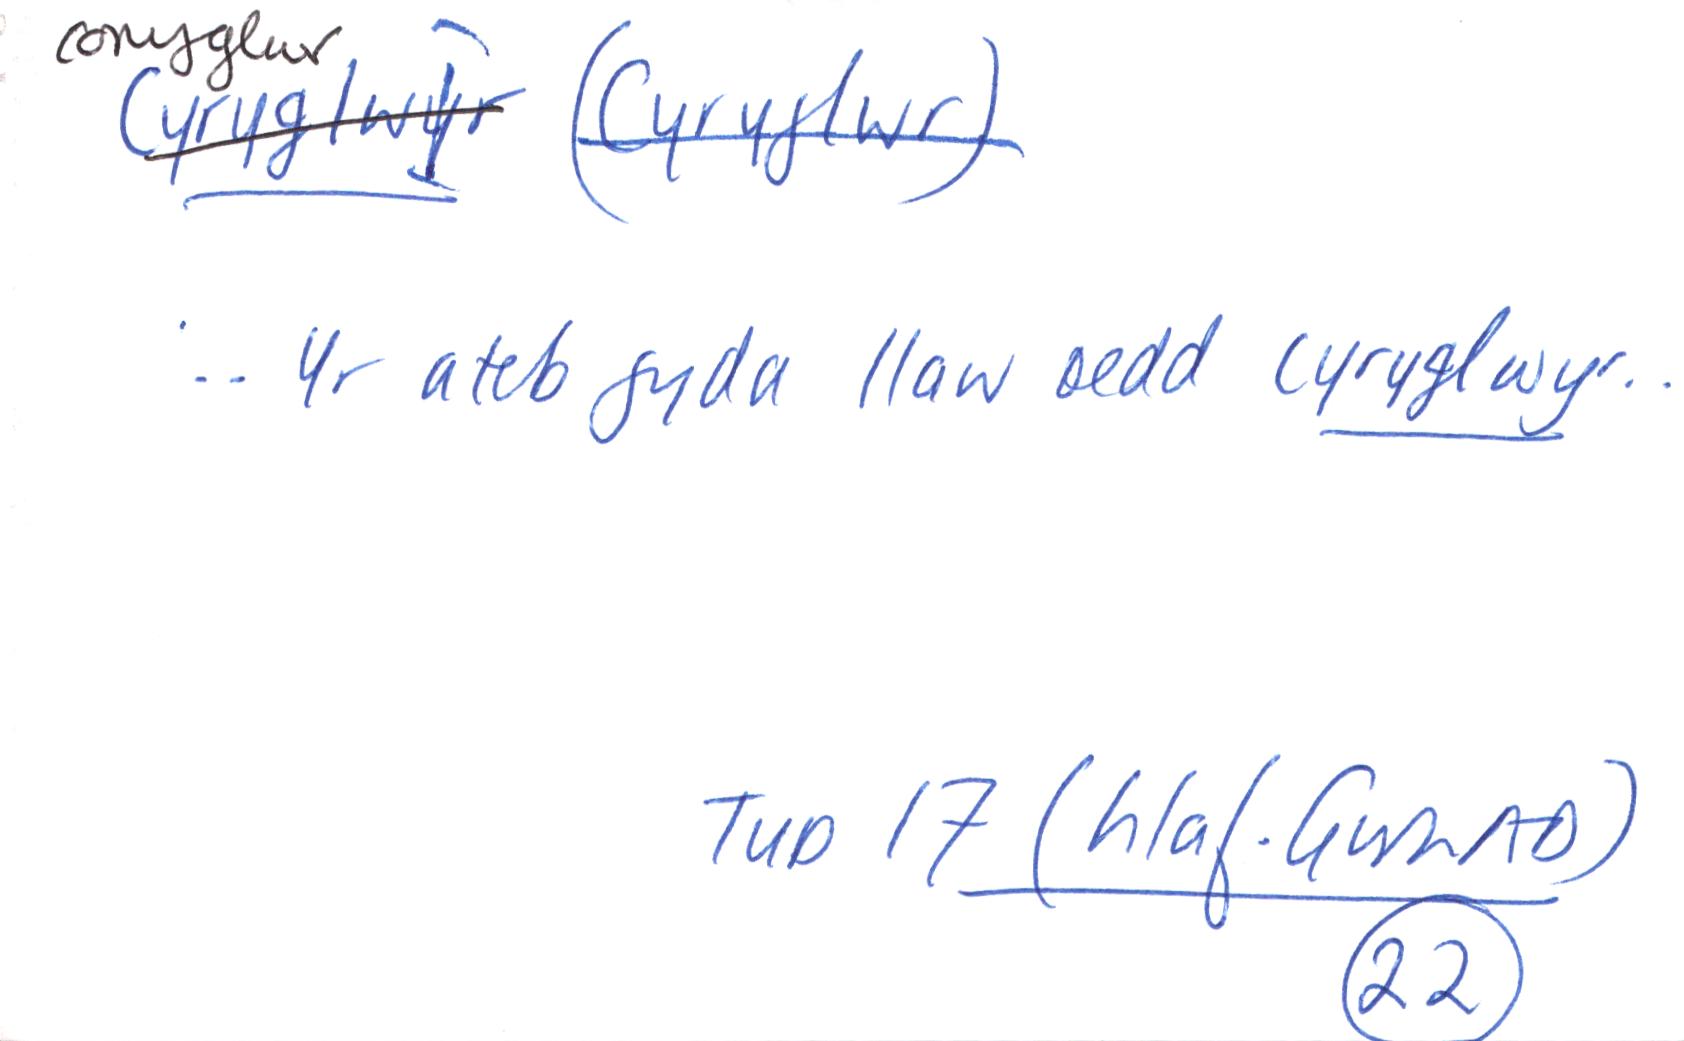 coryglwr
Cyryglwyr (Cyryglwr)
... Yr ateb gyda llaw oedd cyryglwyr..
TUD 17 (hlaf.
22